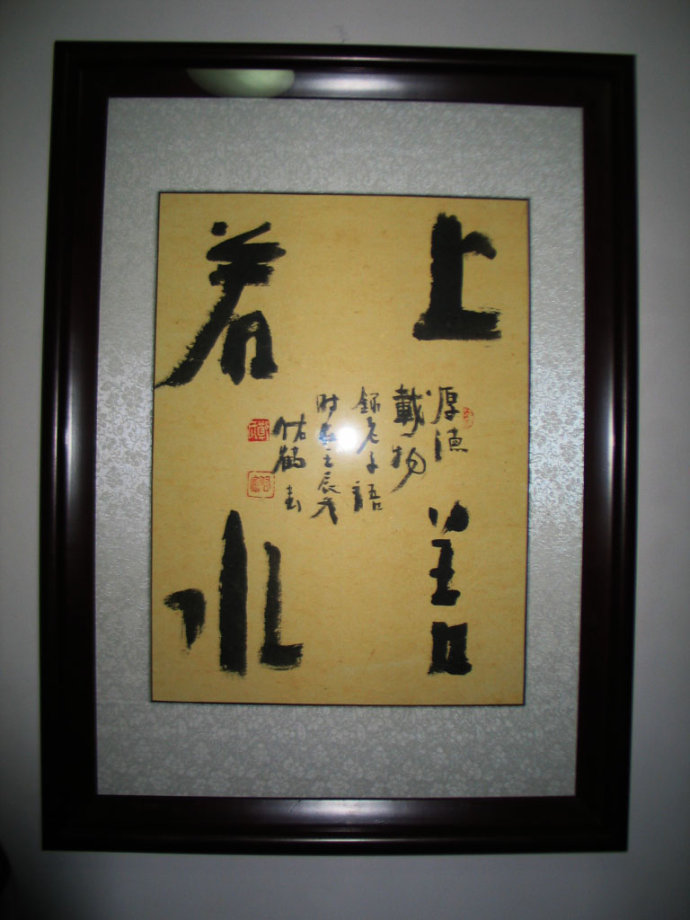 上善
若水
厚德
載物
錄老子語
时壬辰冬
佑鶴書